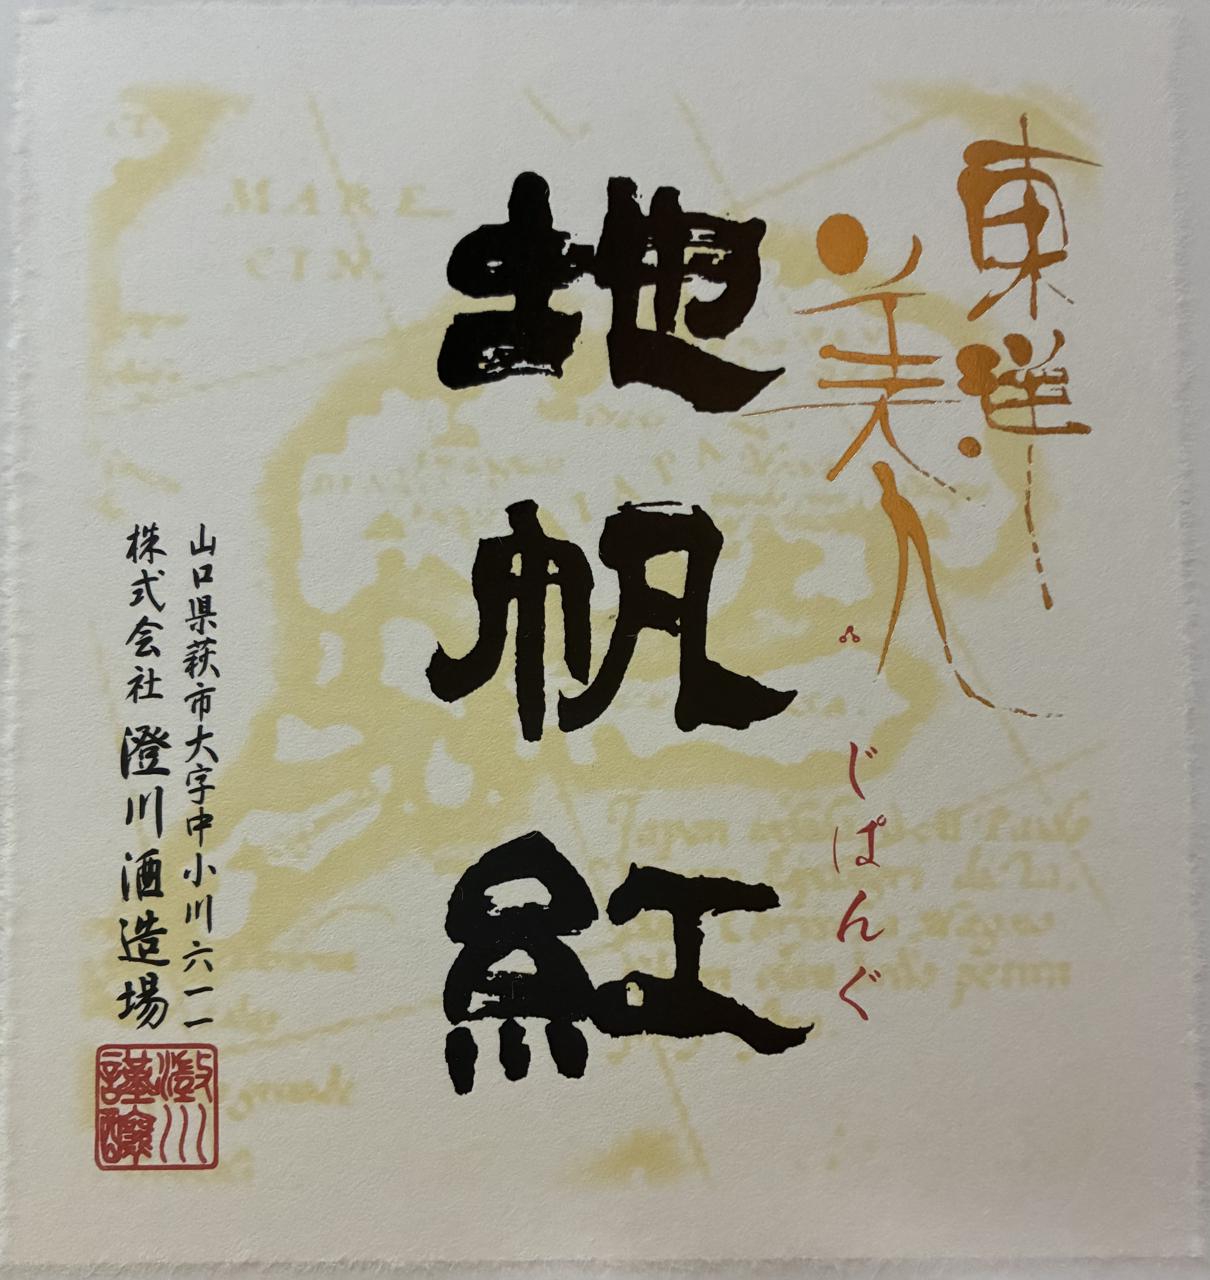 東洋
美人
じぱんぐ
地帆紅
山口県萩市大字中小川六一一
株式会社 澄川酒造場
澄川
謹醸
MARE